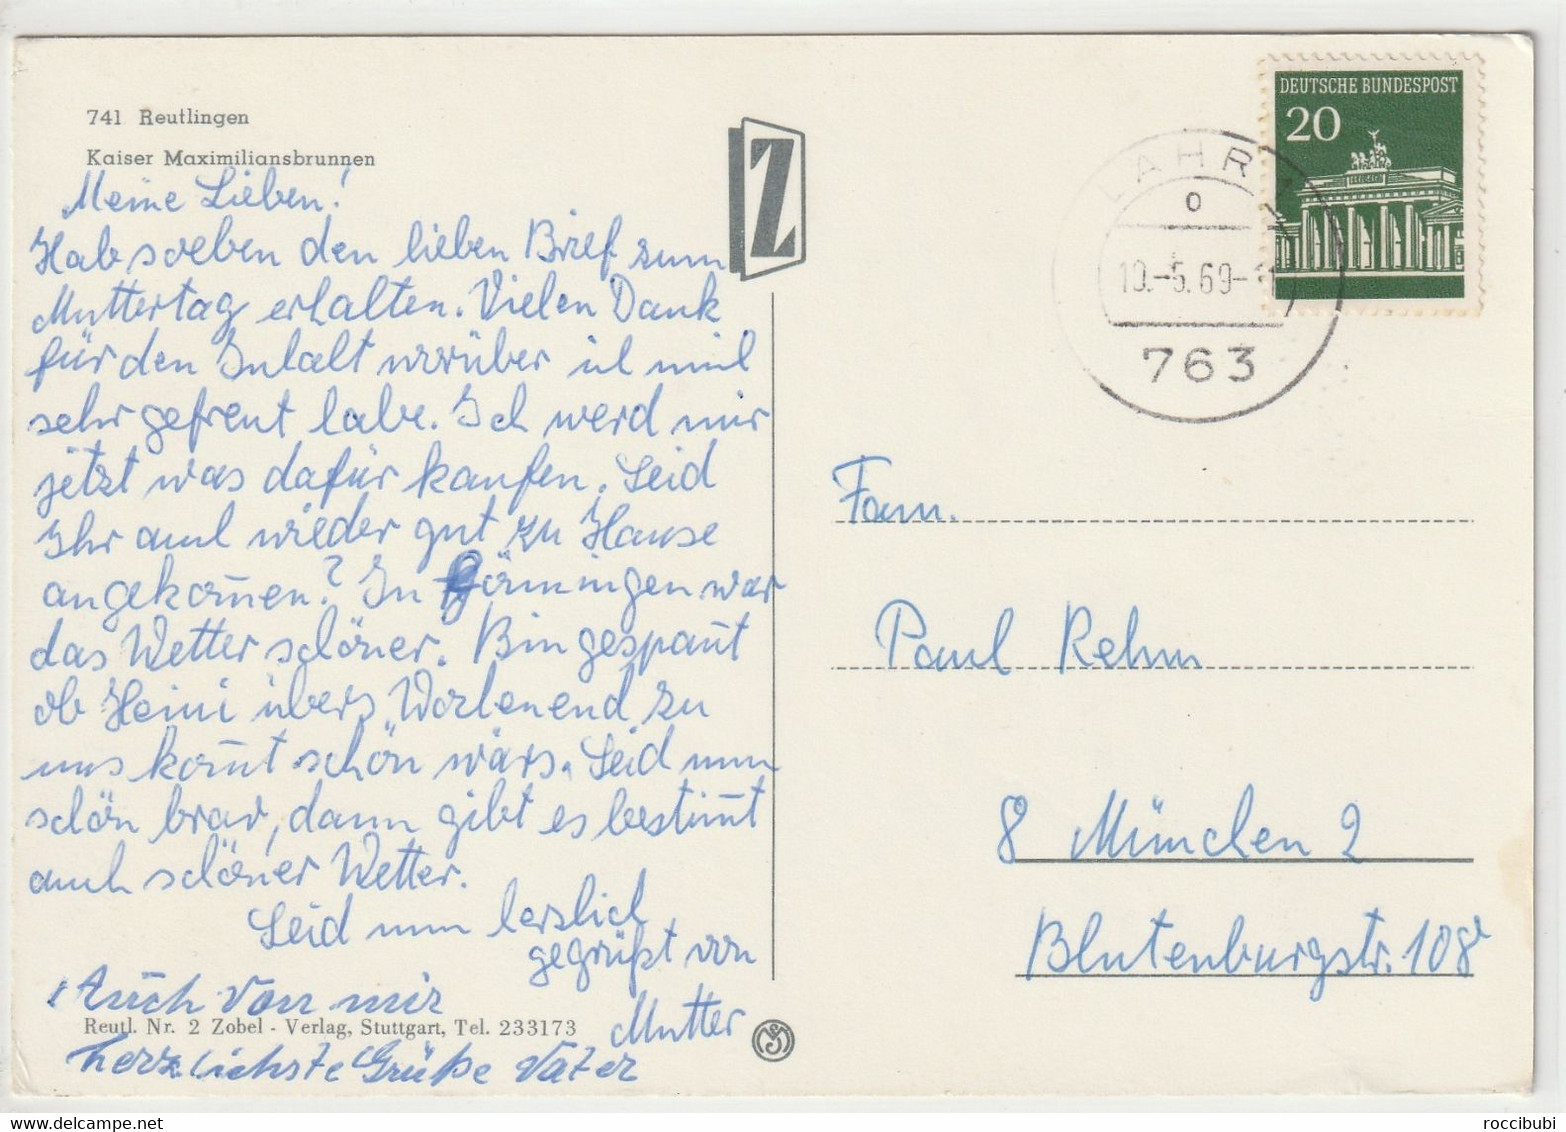 741 Reutlingen
Kaiser Maximiliansbrunnen
Meine Lieben!
Hab soeben den lieben Brief zum
Muttertag erhalten. Vielen Dank
für den Inhalt worüber ich mich
sehr gefreut habe. Ich werd mir
jetzt was dafür kaufen. Seid
Ihr auch wieder gut zu Hause
angekom̅en? In war
das Wetter schöner. Bin gespan̅t
ob Heini übers Wochenend zu
uns kom̅t schön wärs. Seid nun
schön brav, dann gibt es bestim̅t
auch schöner Wetter.
Seid nun herzlich
gegrüßt von
Mutter
Auch von mir
herzlichste Grüße Vater
Reutl. Nr. 2 Zobel - Verlag, Stuttgart, Tel. 233173
Z
DEUTSCHE BUNDESPOST
20
LAHR 1
o
10.-5.69-11
763
Fam.
Paul Rehm
8 München 2
Blutenburgstr. 108
roccibubi